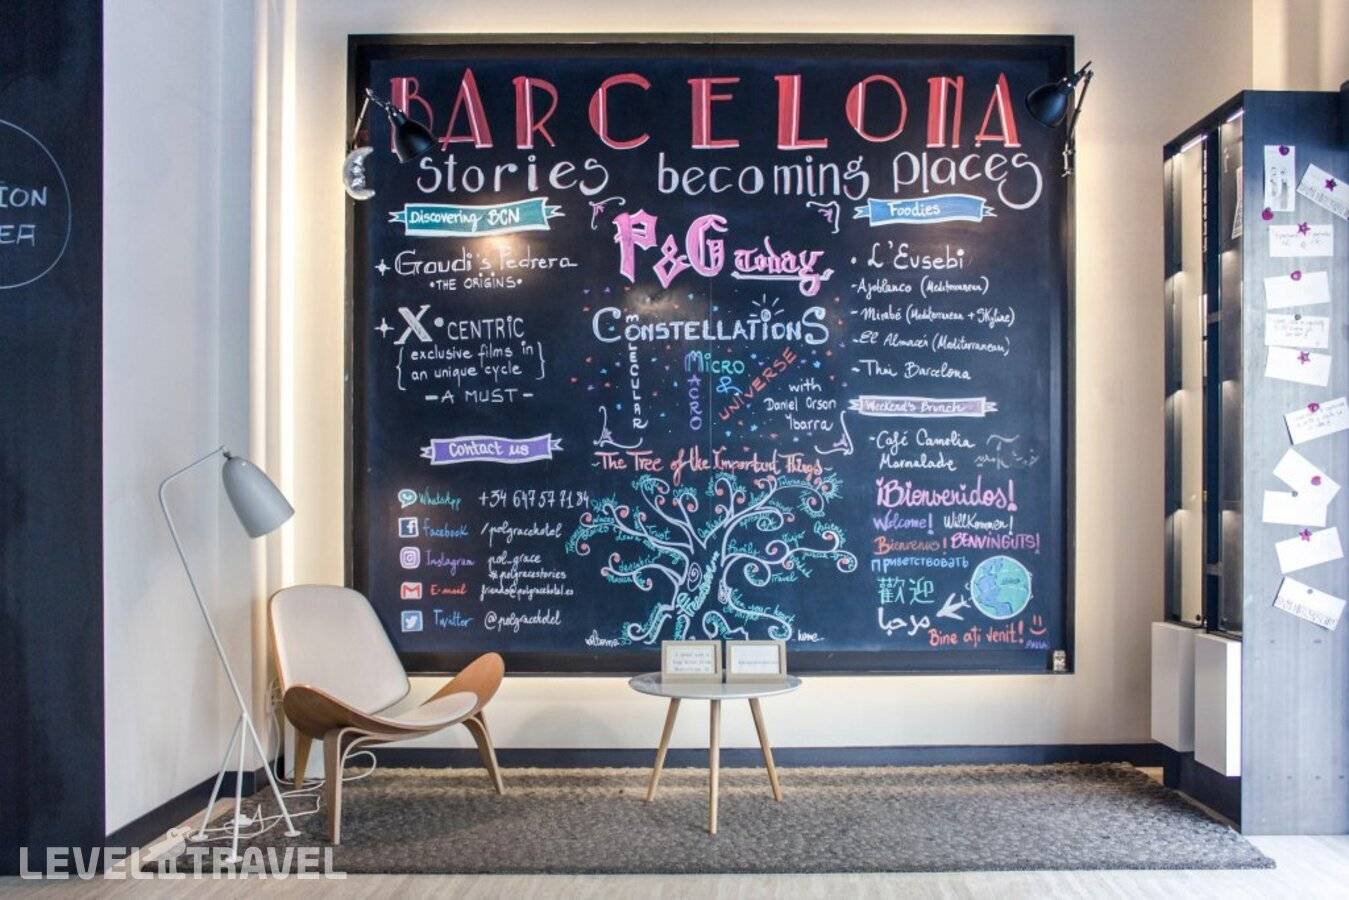 BARCELONA
Stories becoming Places
Discovering BCN
Gaudi's Pedrera
• THE ORIGINS •
X•CENTRIC
{exclusive films in
an unique cycle}
- A MUST -
Contact us
WhatsApp +34 647 57 71 84
Facebook /polgracehotel
Instagram pol_grace
#polgracestories
E-mail friends@polgracehotel.es
Twitter @polgracehotel
P&G Today
CONSTELLATIONS
MOLECULAR
MICRO
&
MACRO
UNIVERSE
with
Daniel Orson
Ybarra
~The Tree of the Important Things~
Freedom
Family
Trust
Travel
welcome home
Foodies
• L'Eusebi
- Ajoblanco (Mediterranean)
- Mirabé (Mediterranean + Skyline)
- El Almacén (Mediterranean)
- Thai Barcelona
Weekend's Brunch
- Café Camelia
Marmalade
¡Bienvenidos!
Welcome! Willkommen!
Bienvenue! BENVINGUTS!
ПРИВЕТСТВОВАТЬ
歡迎
مرحبا
Bine ați venit!
ION
EA
LEVEL TRAVEL